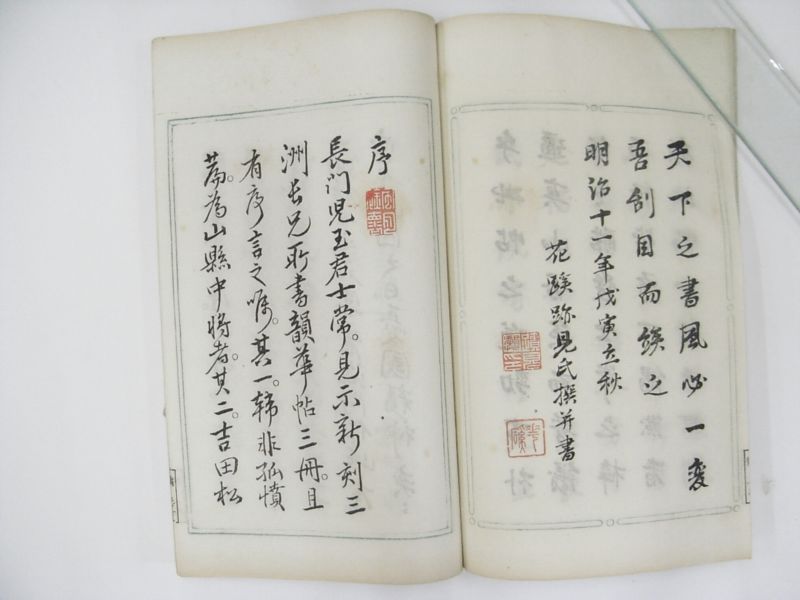 天下之書風必一変
吾刮目而竢之
明治十一年戊寅立秋
花蹊跡見氏撰并書
序
長門児玉君士常。見示新刻三
洲長兄所書韻華帖三冊。且
有序言之嘱。其一。韓非孤憤
篇。為山縣中将者。其二。吉田松